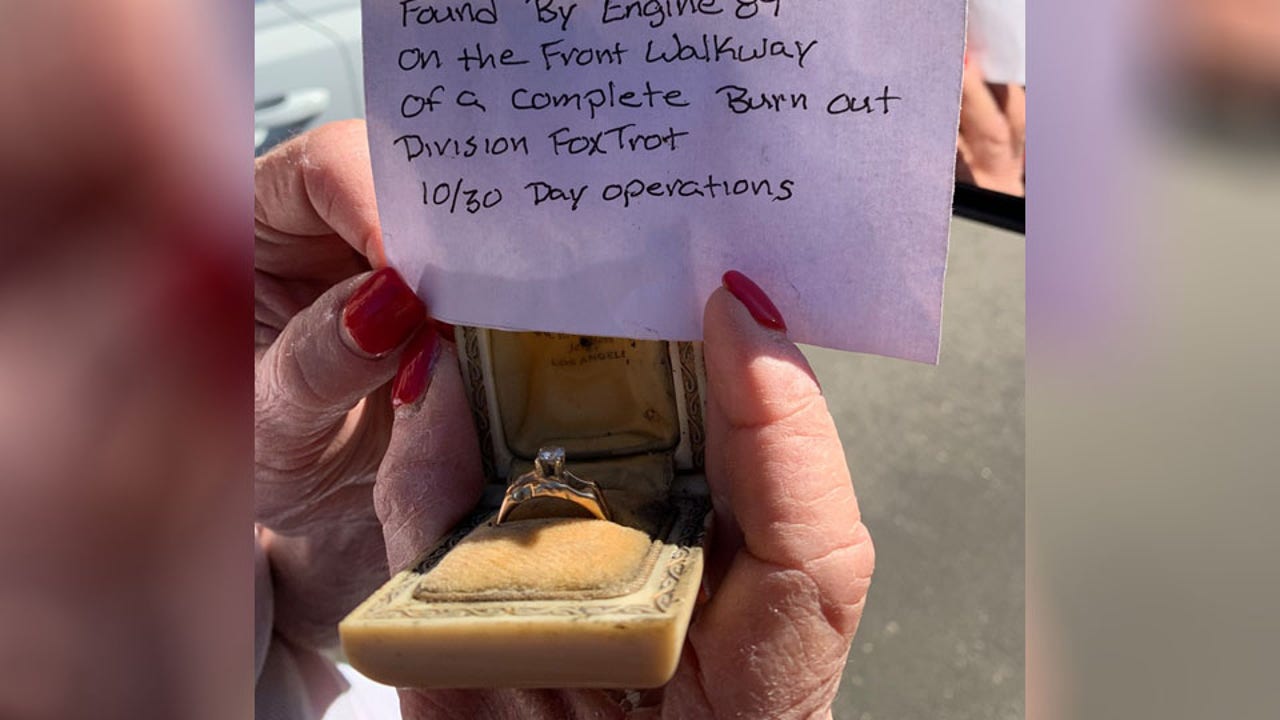 Found By Engine 89
on the Front Walkway
of a complete Burn out
Division FoxTrot
10/30 Day operations
LOS ANGELES